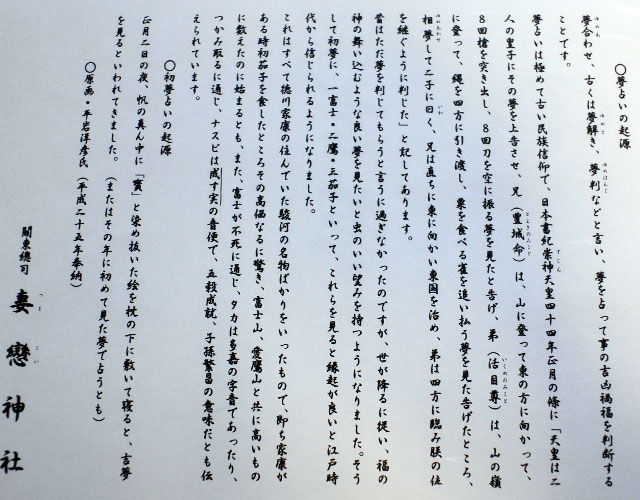 〇夢占いの起源
夢合わせ、古くは夢解き、夢判などと言い、夢を占って事の吉凶禍福を判断する
ゆめあ
ゆめと
ゆめはんじ
ことです。
夢占いは極めて古い民族信仰で、日本書紀崇神天皇四十四年正月の條に「天皇は二
すじん
人の皇子にその夢を上告させ、兄(豊城命)は、山に登って東の方に向かって、
とよきのみこと
8回槍を突き出し、8回刀を空に振る夢を見たと告げ、弟(活目尊)は、山の嶺
いくめのみこと
に登って、縄を四方に引き渡し、粟を食べる雀を追い払う夢を見た告げたところ、
相夢して二子に曰く、兄は直ちに東に向かい東国を治め、弟は四方に臨み朕の位
ゆめあわせ
いわ
を継ぐように判じた」と記してあります。
昔はただ夢を判じてもらうと言うに過ぎなかったのですが、世が降るに従い、福の
神の舞い込むような良い夢を見たいと虫のいい望みを持つようになりました。そう
して初夢に、一富士・二鷹・三茄子といって、これらを見ると縁起が良いと江戸時
代から信じられるようになりました。
これはすべて徳川家康の住んでいた駿河の名物ばかりをいったもので、即ち家康が
ある時初茄子を食したところその高価なるに驚き、富士山、愛鷹山と共に高いもの
に数えたのに始まるとも、また、富士が不死に通じ、タカは多嘉の字音であったり、
つかみ取るに通じ、ナスビは成す実の音便で、五穀成就、子孫繁昌の意味だとも伝
えられています。
〇初夢占いの起源
正月二日の夜、帆の真ん中に「寳」と染め抜いた絵を枕の下に敷いて寝ると、吉夢
を見るといわれてきました。(またはその年に初めて見た夢で占うとも)
〇原画・平岩洋彦氏(平成二十五年奉納)
関東總司
妻戀神社
つまこい